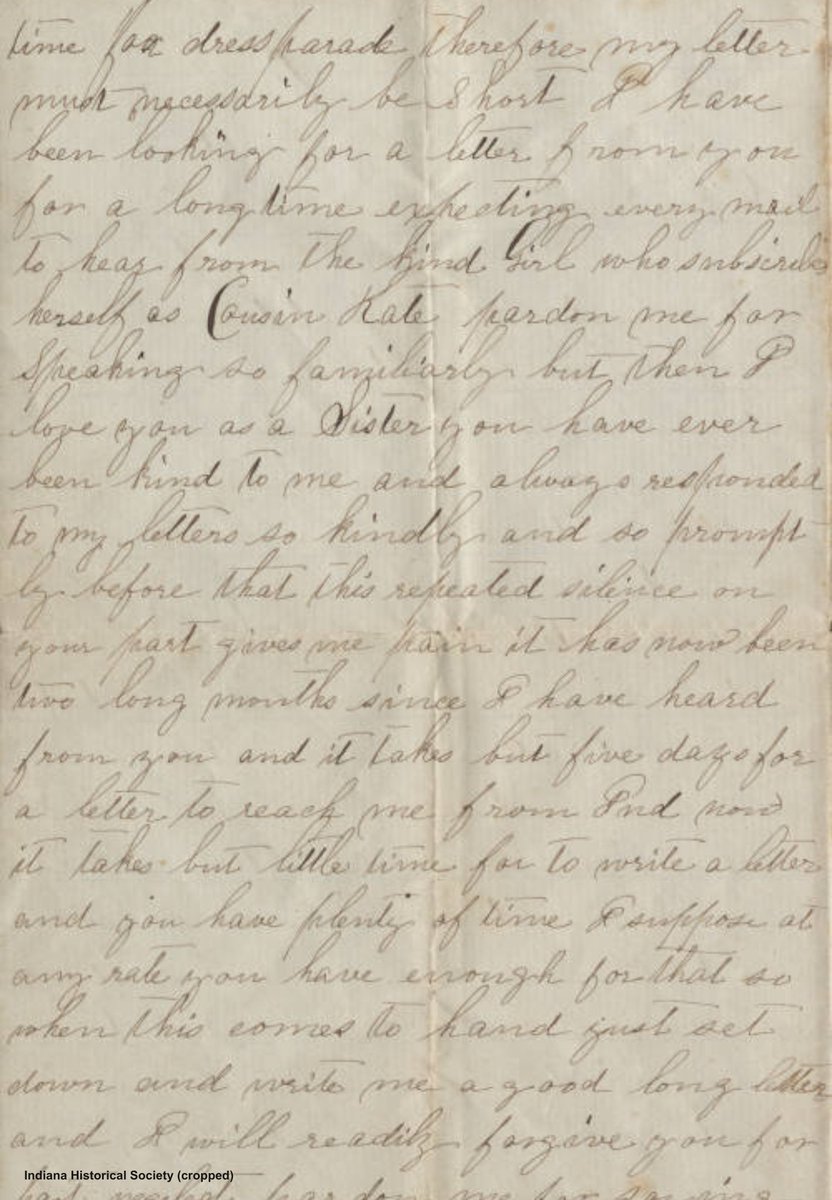 time for dress parade therefore my letter
must necessarily be Short I have
been looking for a letter from you
for a long time expecting every mail
to hear from the kind Girl who subscribe
herself as Cousin Kate pardon me for
Speaking so familiarly but then I
love you as a Sister you have ever
been kind to me and always responded
to my letters so kindly and so prompt
ly before that this repeated silence on
your part gives me pain it has now been
two long months since I have heard
from you and it takes but five days for
a letter to reach me from Ind now
it takes but little time for to write a letter
and you have plenty of time I suppose at
any rate you have enough for that so
when this comes to hand just set
down and write me a good long letter
and I will readily forgive you for
Indiana Historical Society (cropped)
pardon me for